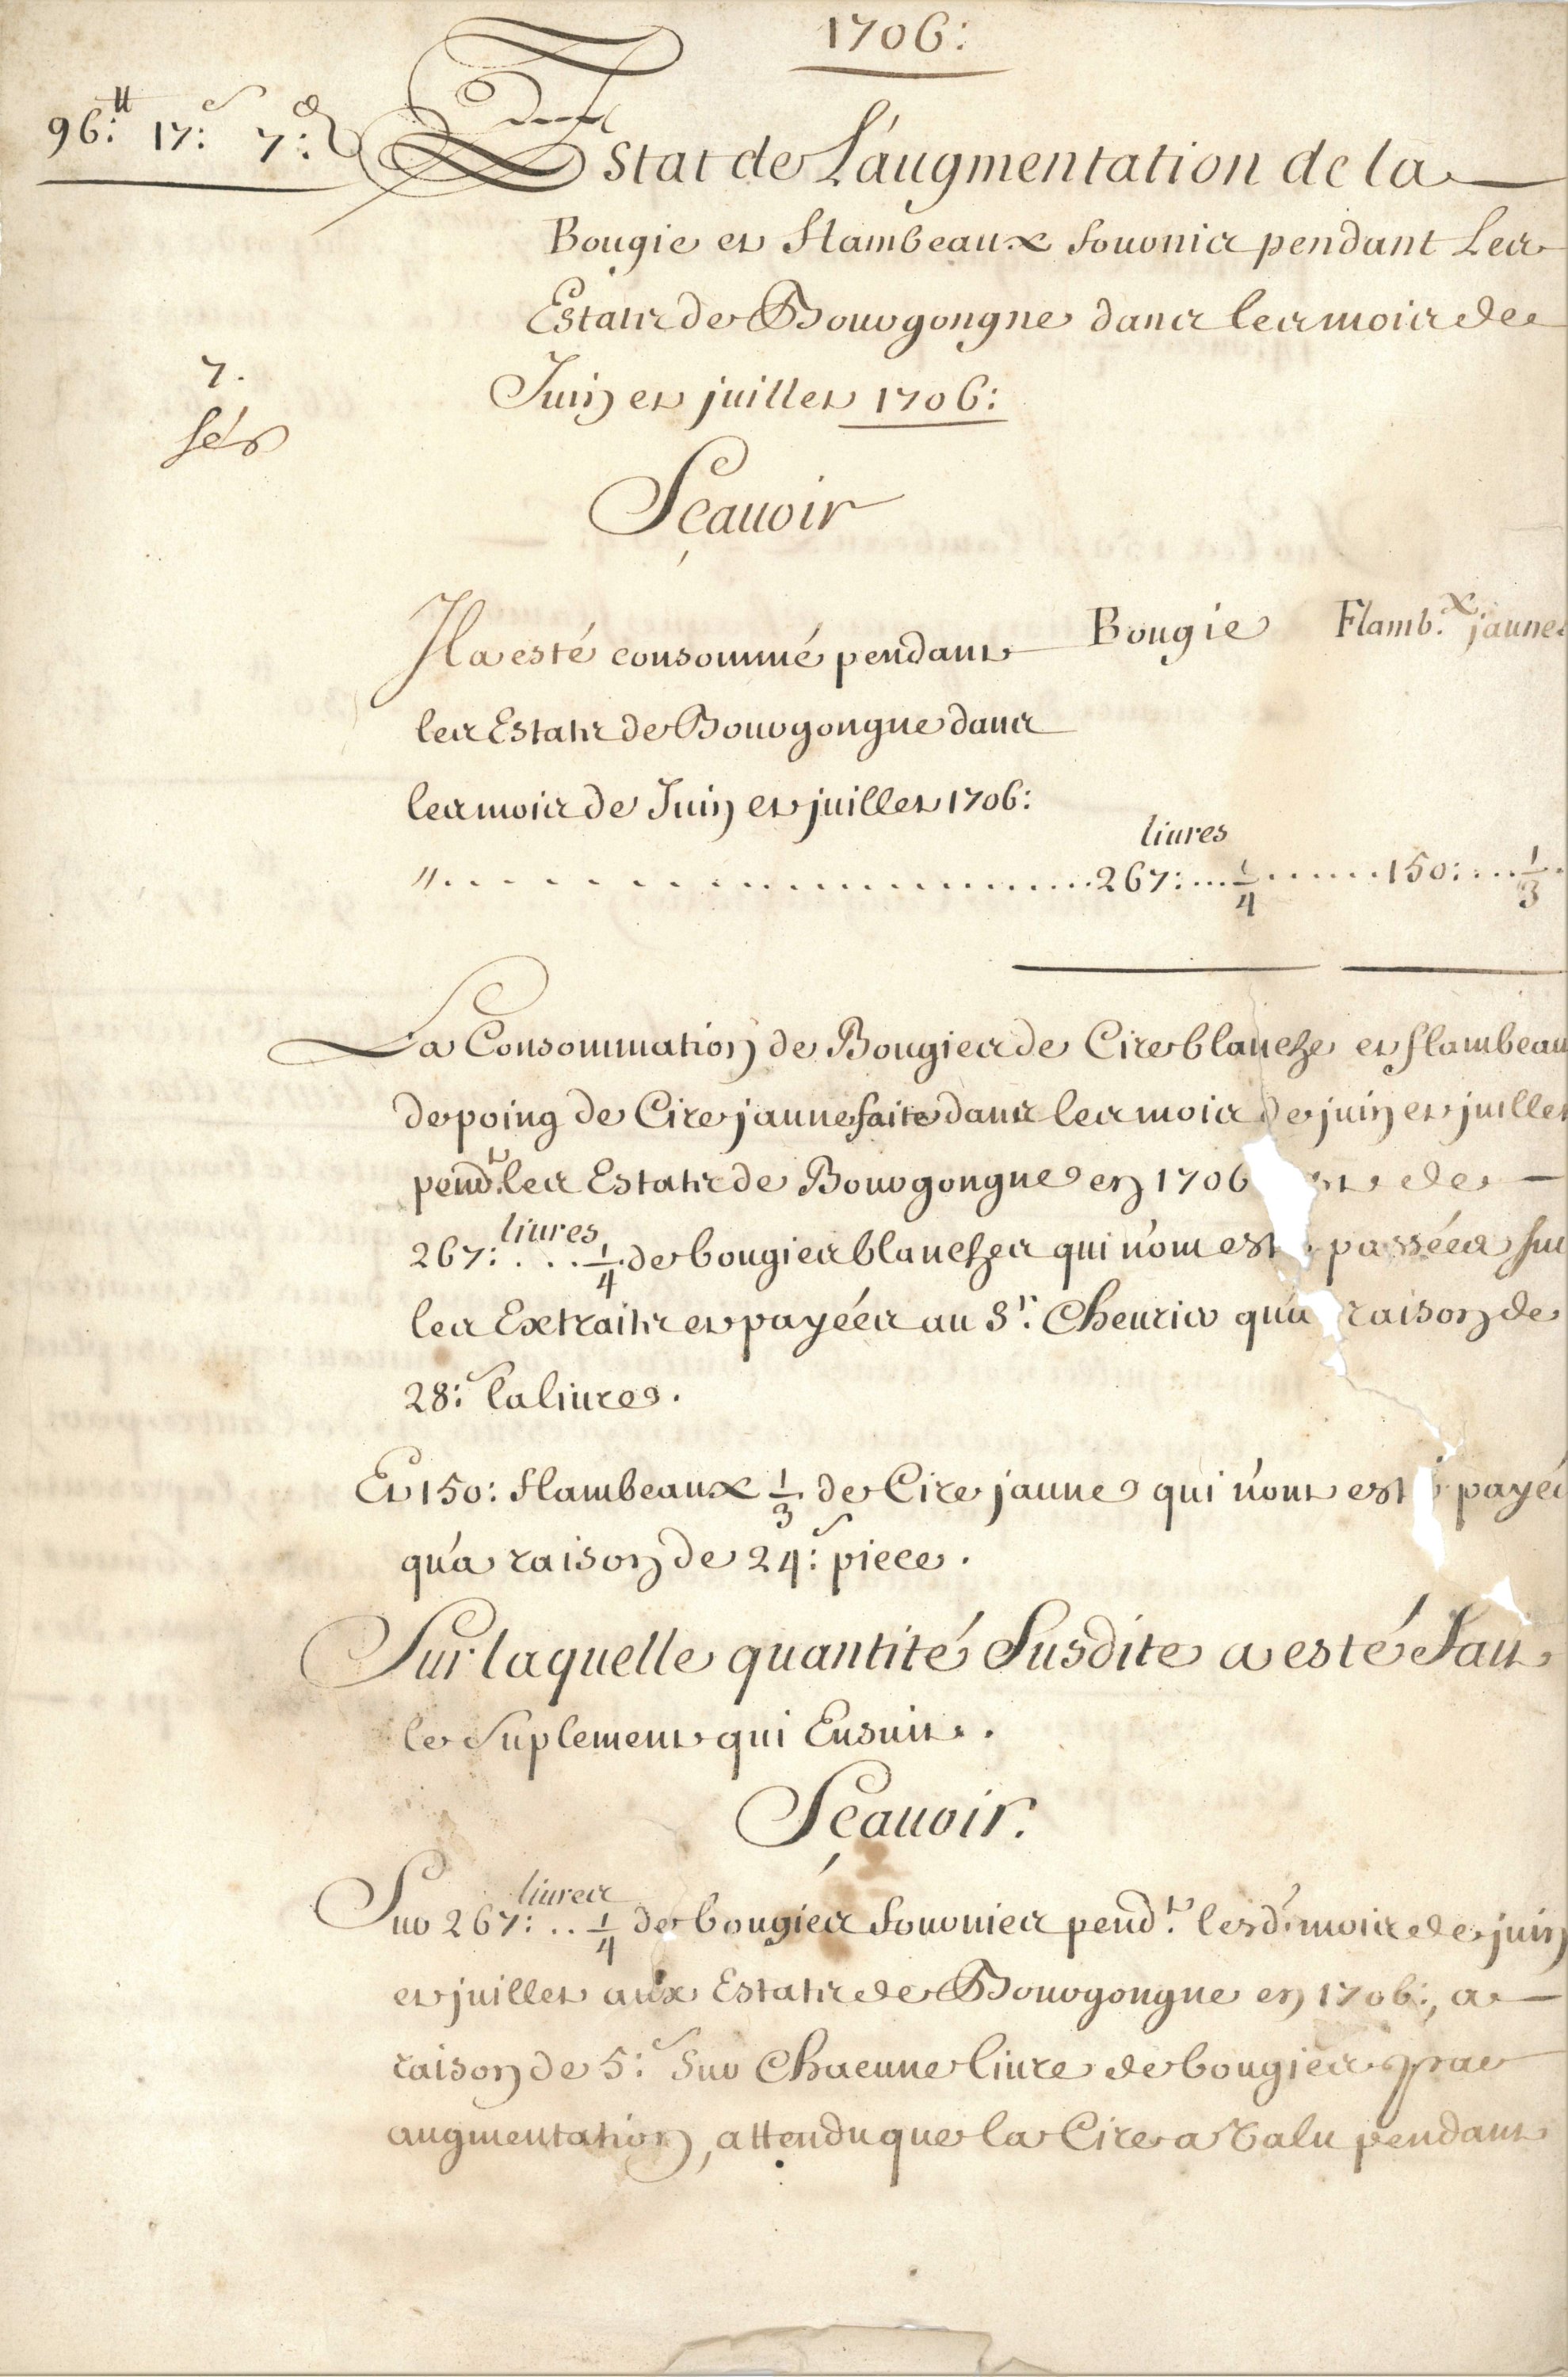 1706:
96:ᵗᵗ 17:ˢ 7:ᵈ
Estat de L'augmentation de la
Bougie et flambeaux fournis pendant Les
Estats de Bourgongne dans les mois de
Juin et juillet 1706:
7.
Sçauoir
Il a esté consommé pendant
Bougie Flamb.ˣ jaunes
les Estats de Bourgongne dans
les mois de Juin et juillet 1706:
liures
"..............................267:....1/4.......150:....1/3.
La Consommation de Bougies de Cire blanche et flambeau
de poing de Cire jaune faite dans les mois de juin et juillet
pend.ᵗ les Estats de Bourgongne en 1706 de
267: liures ... 1/4 de bougies blanches qui n'ont est passées sur
les Extraits et payées au Sʳ. Cheurier qu'a raison de
28:ˢ la liure.
Et 150: flambeaux 1/3 de Cire jaune qui n'ont est payé
qu'a raison de 24:ˢ piece.
Sur laquelle quantité Susdite a esté Fait
le Suplement qui Ensuit.
Sçauoir.
Sur 267: liures .. 1/4 de bougies fournies pend.ᵗ lesd. mois de juin
et juillet aux Estats de Bourgongne en 1706:, a
raison de 5:ˢ Sur Chacune liure de bougies par
augmentation, attendu que la Cire a valu pendant